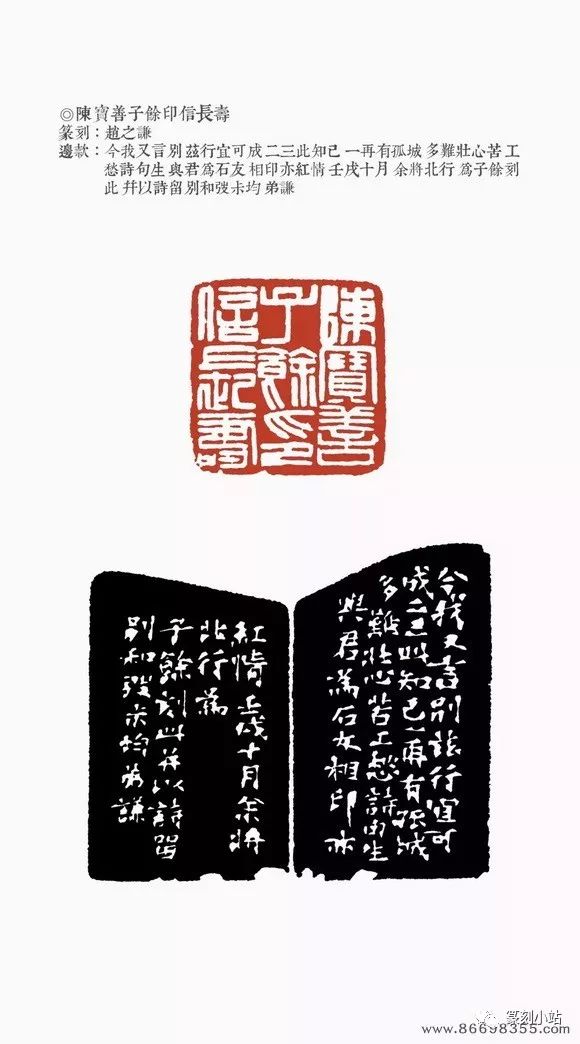 ◎陳寶善子餘印信長壽
篆刻：趙之謙
邊款：今我又言別 茲行宜可成 二三此知己 一再有孤城 多難壯心苦 工
愁詩句生 與君爲石友 相印亦紅情 壬戌十月 余將北行 爲子餘刻
此 幷以詩留別和弢未均 弟謙
陳寶善
子餘印
信長壽
今我又言別茲行宜可
成二三此知己一再有孤城
多難壯心苦工愁詩句生
與君爲石友相印亦
紅情壬戌十月余將
北行爲
子餘刻此幷以詩留
別和弢未均弟謙
篆刻小站
www.86698355.com